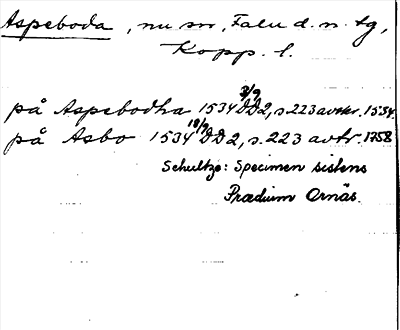 Aspeboda, nu sn, Falu d. n. tg,
Kopp. l.
på Aspebodha 1534 3/9 DD2, s. 223 avtr. 1534.
på Asbo 1534 18/9 DD2, s. 223 avtr. 1758
Schultze: Specimen sistens
Prædium Ornäs.